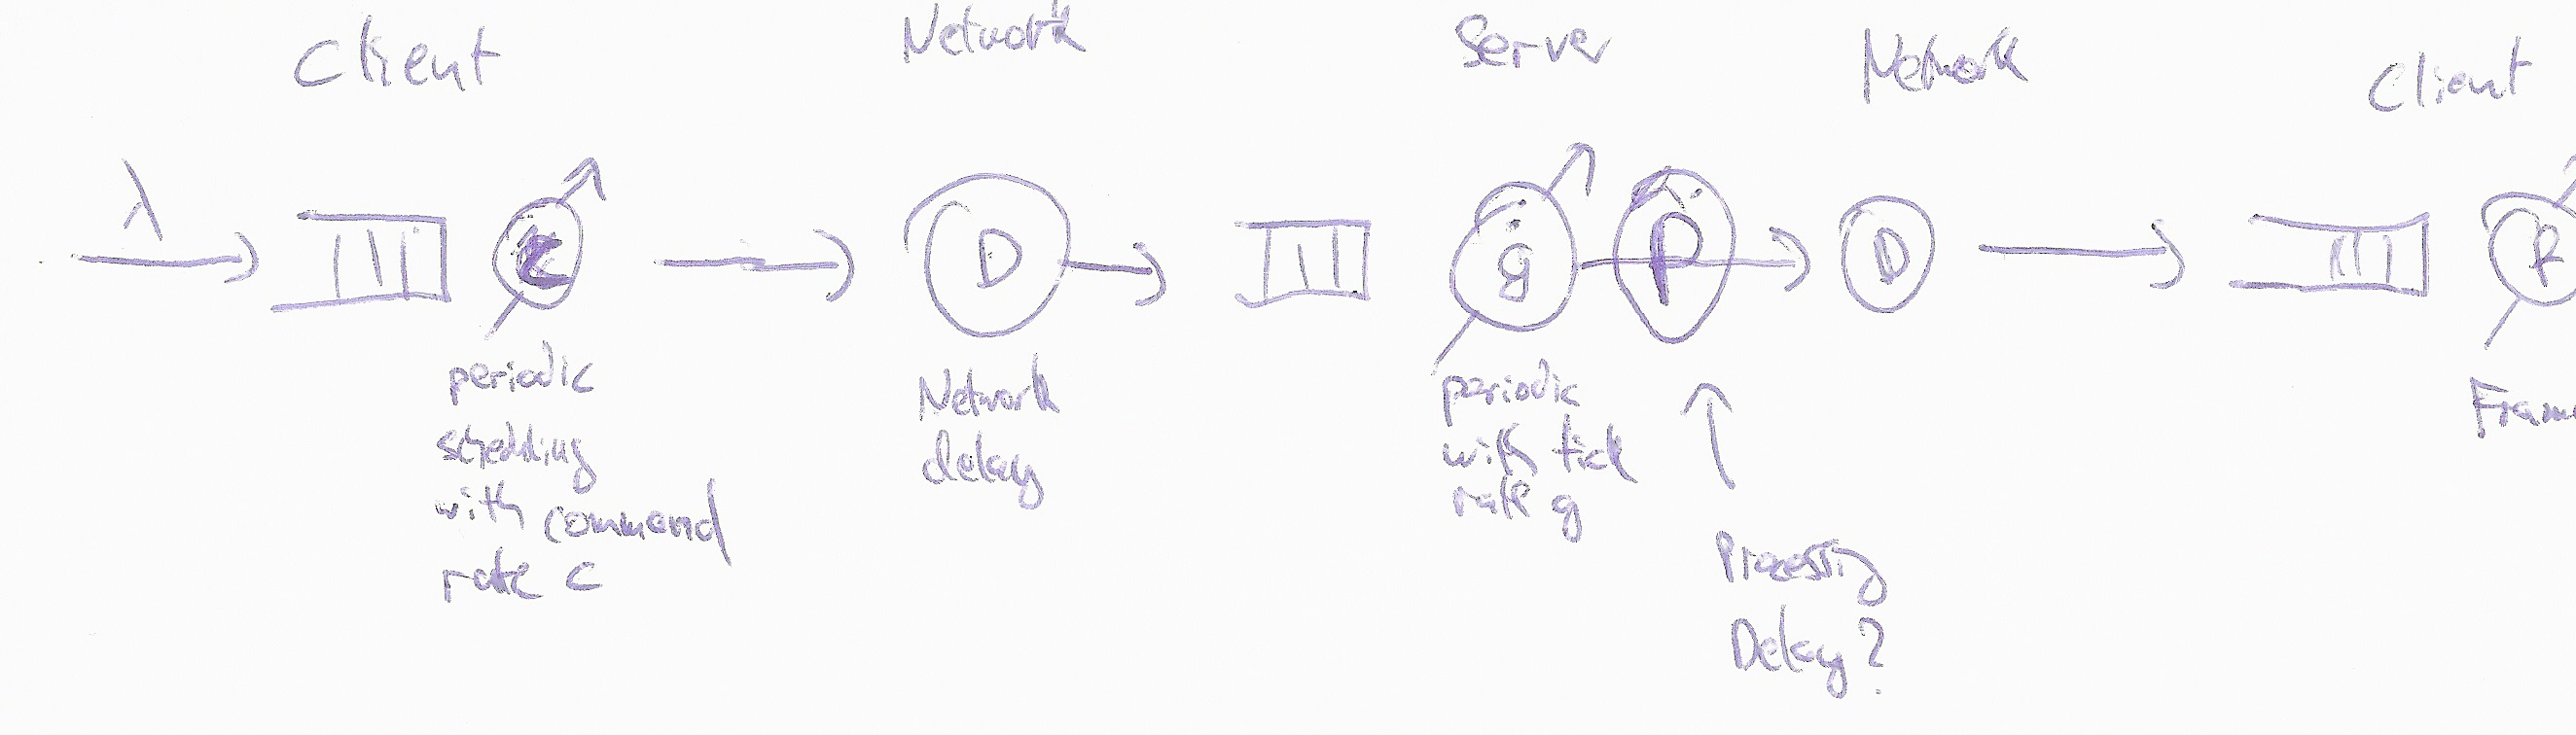 Client
Network
Server
Network
Client
λ
C
D
g
P
D
periodic
scheduling
with command
rate c
Network
delay
periodic
with tick
rate g
Processing
Delay?
Fram